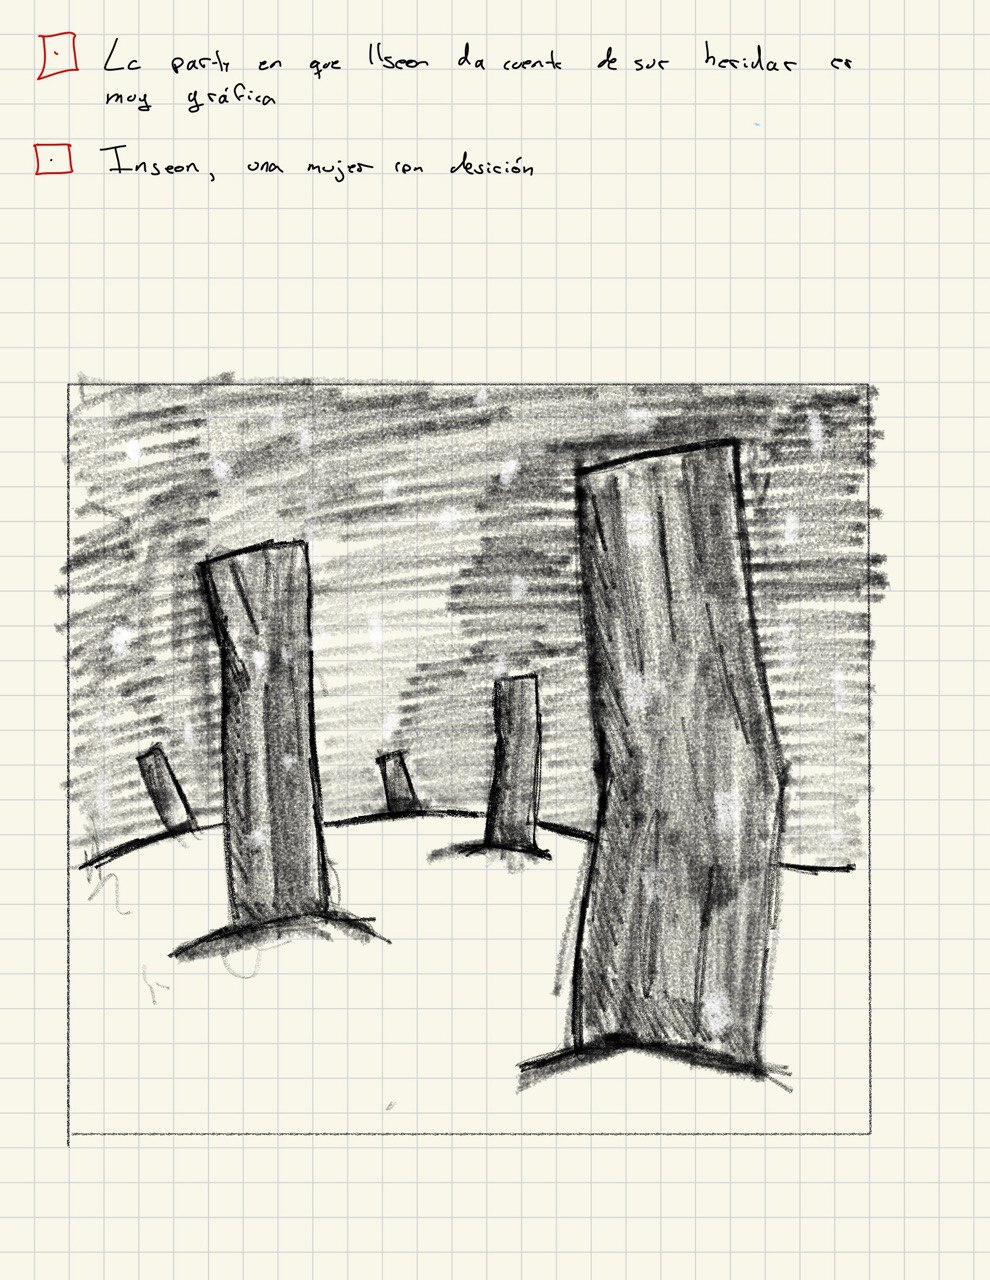 La parte en que Ilseon da cuenta de sus heridas es
muy gráfica
Inseon, una mujer con desición